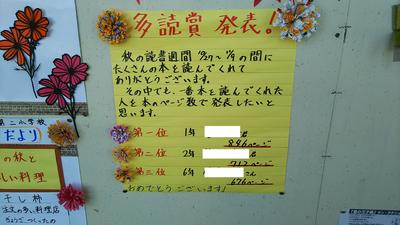 多読賞 発表!
秋の読書週間 10/27〜11/9の間に
たくさんの本を読んでくれて
ありがとうございます。
その中でも、一番本を読んでくれた
人を本のページ数で発表したいと
思います。
第一位 1年 君
896ページ
第二位 2年 君
712ページ
第三位 6年 さん
676ページ
おめでとうございます!
第二小学校
だより
の秋と
しい料理
干し柿
注文の多い料理店